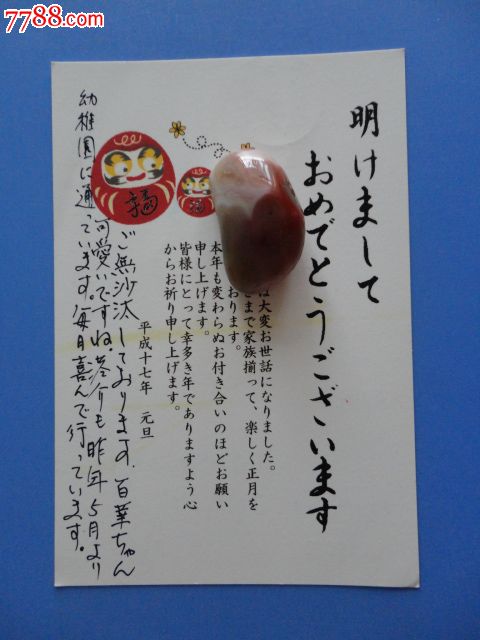 7788.com
明けまして
おめでとうございます
は大変お世話になりました。
まで家族揃って、楽しく正月を
おります。
本年も変わらぬお付き合いのほどお願い
申し上げます。
皆様にとって幸多き年でありますよう心
からお祈り申し上げます。
平成十七年 元旦
ご無沙汰しております。百華ちゃん
可愛いですね。 も昨年5月より
幼稚園に通っています。毎日喜んで行っています。
福
福